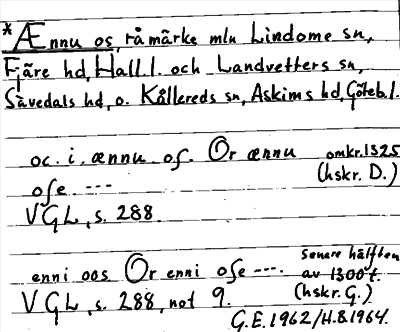 *Ænnu os, råmärke mln Lindome sn,
Fjäre hd, Hall.l. och Landvetters sn,
Sävedals hd, o. Kållereds sn, Askims hd, Göteb.l.
oc. i. ænnu os. Or ænnu omkr.1325
ose. --- (hskr. D.)
VGL, s. 288.
senare hälften
enni oos Or enni ose ---. av 1300 t.
VGL, s. 288, not 9. (hskr. G.)
G.E.1962/H.B.1964.